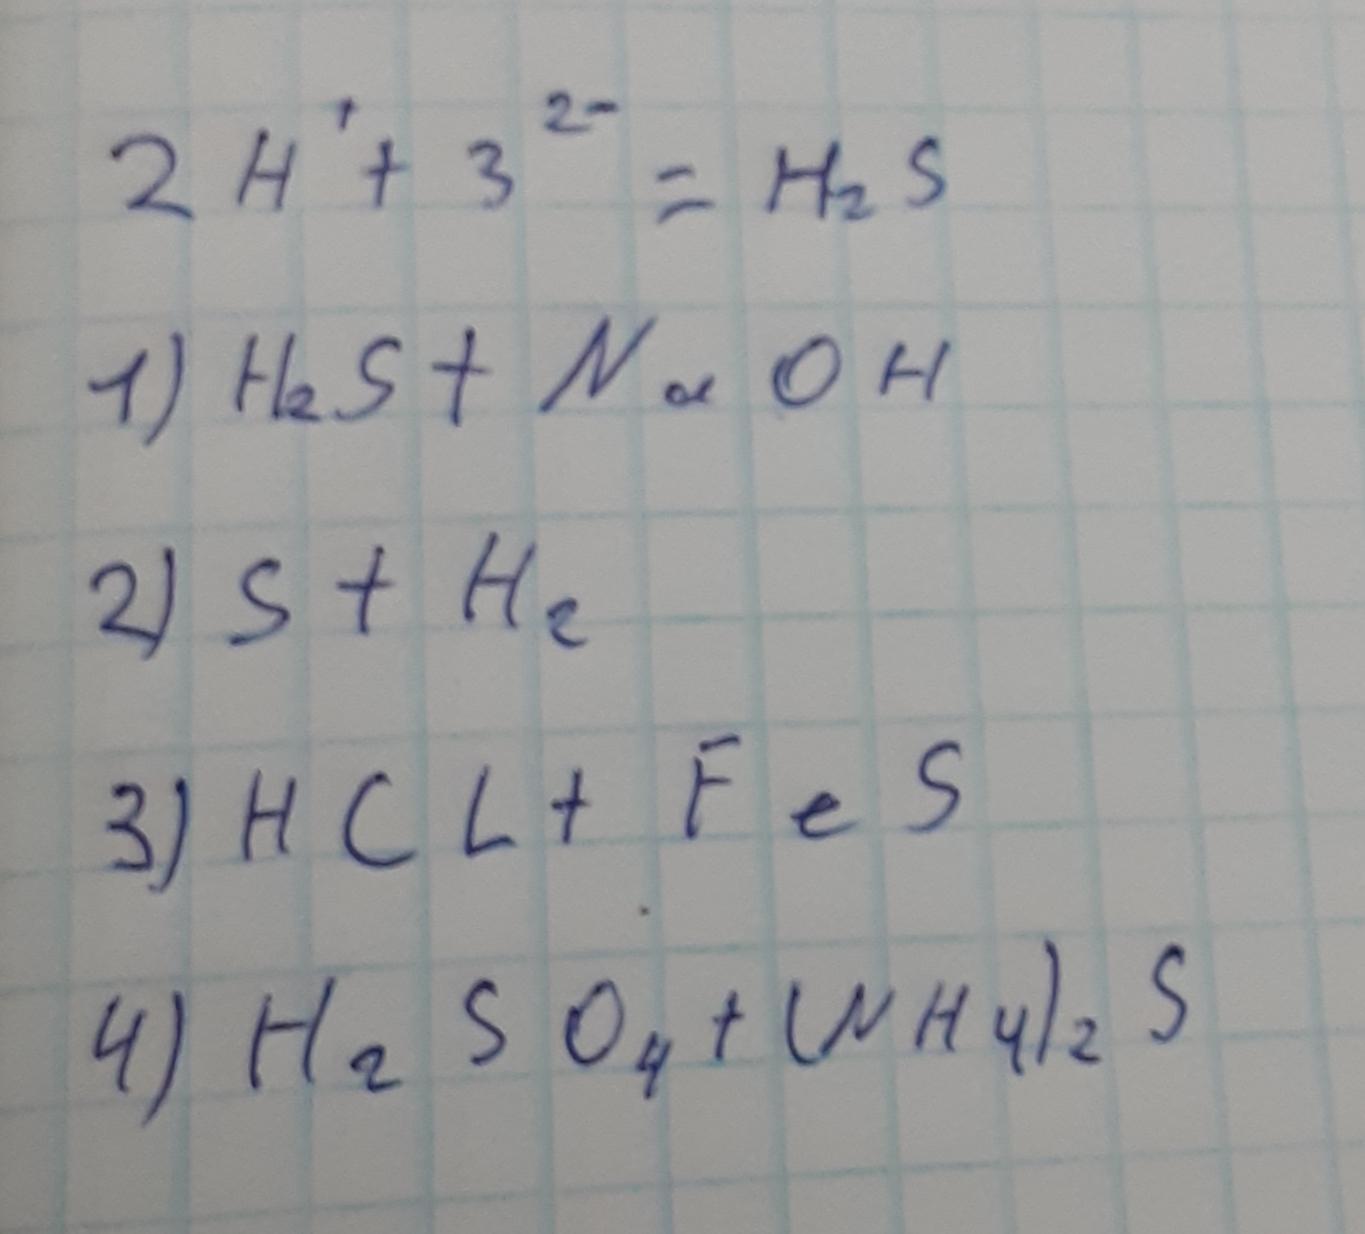 2H⁺ + 3²⁻ = H₂S
1) H₂S + NaOH
2) S + H₂
3) HCL + FeS
4) H₂SO₄ + (NH₄)₂S